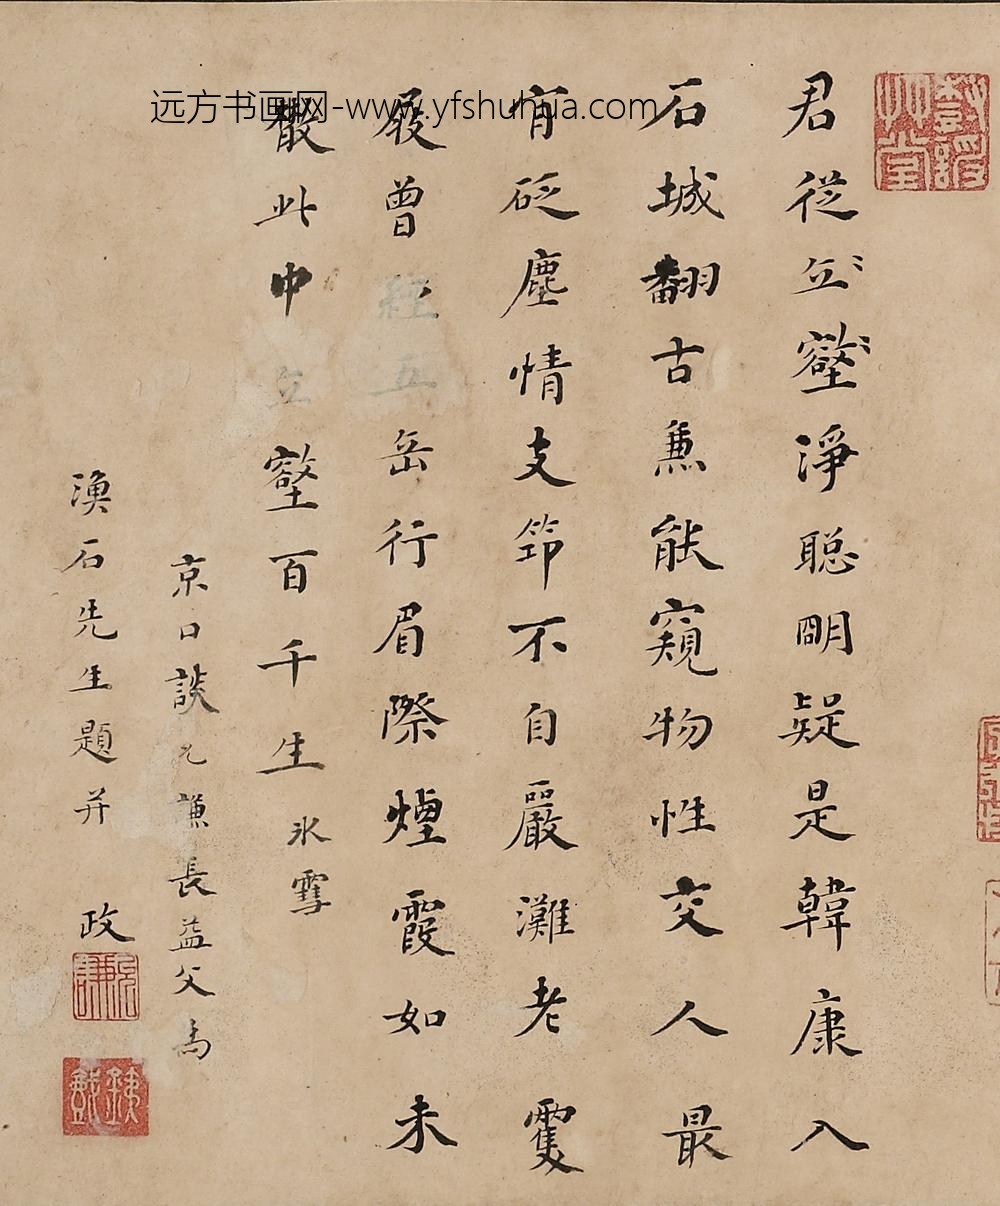 远方书画网-www.yfshuhua.com
君從丘壑淨聰明疑是韓康入
石城翻古兼能窺物性交人最
有砭塵情支笻不自嚴灘老雙
屐曾經五岳行眉際煙霞如未
散此中丘壑百千生
氷雪
京口談允謙長益父為
漁石先生題并 政